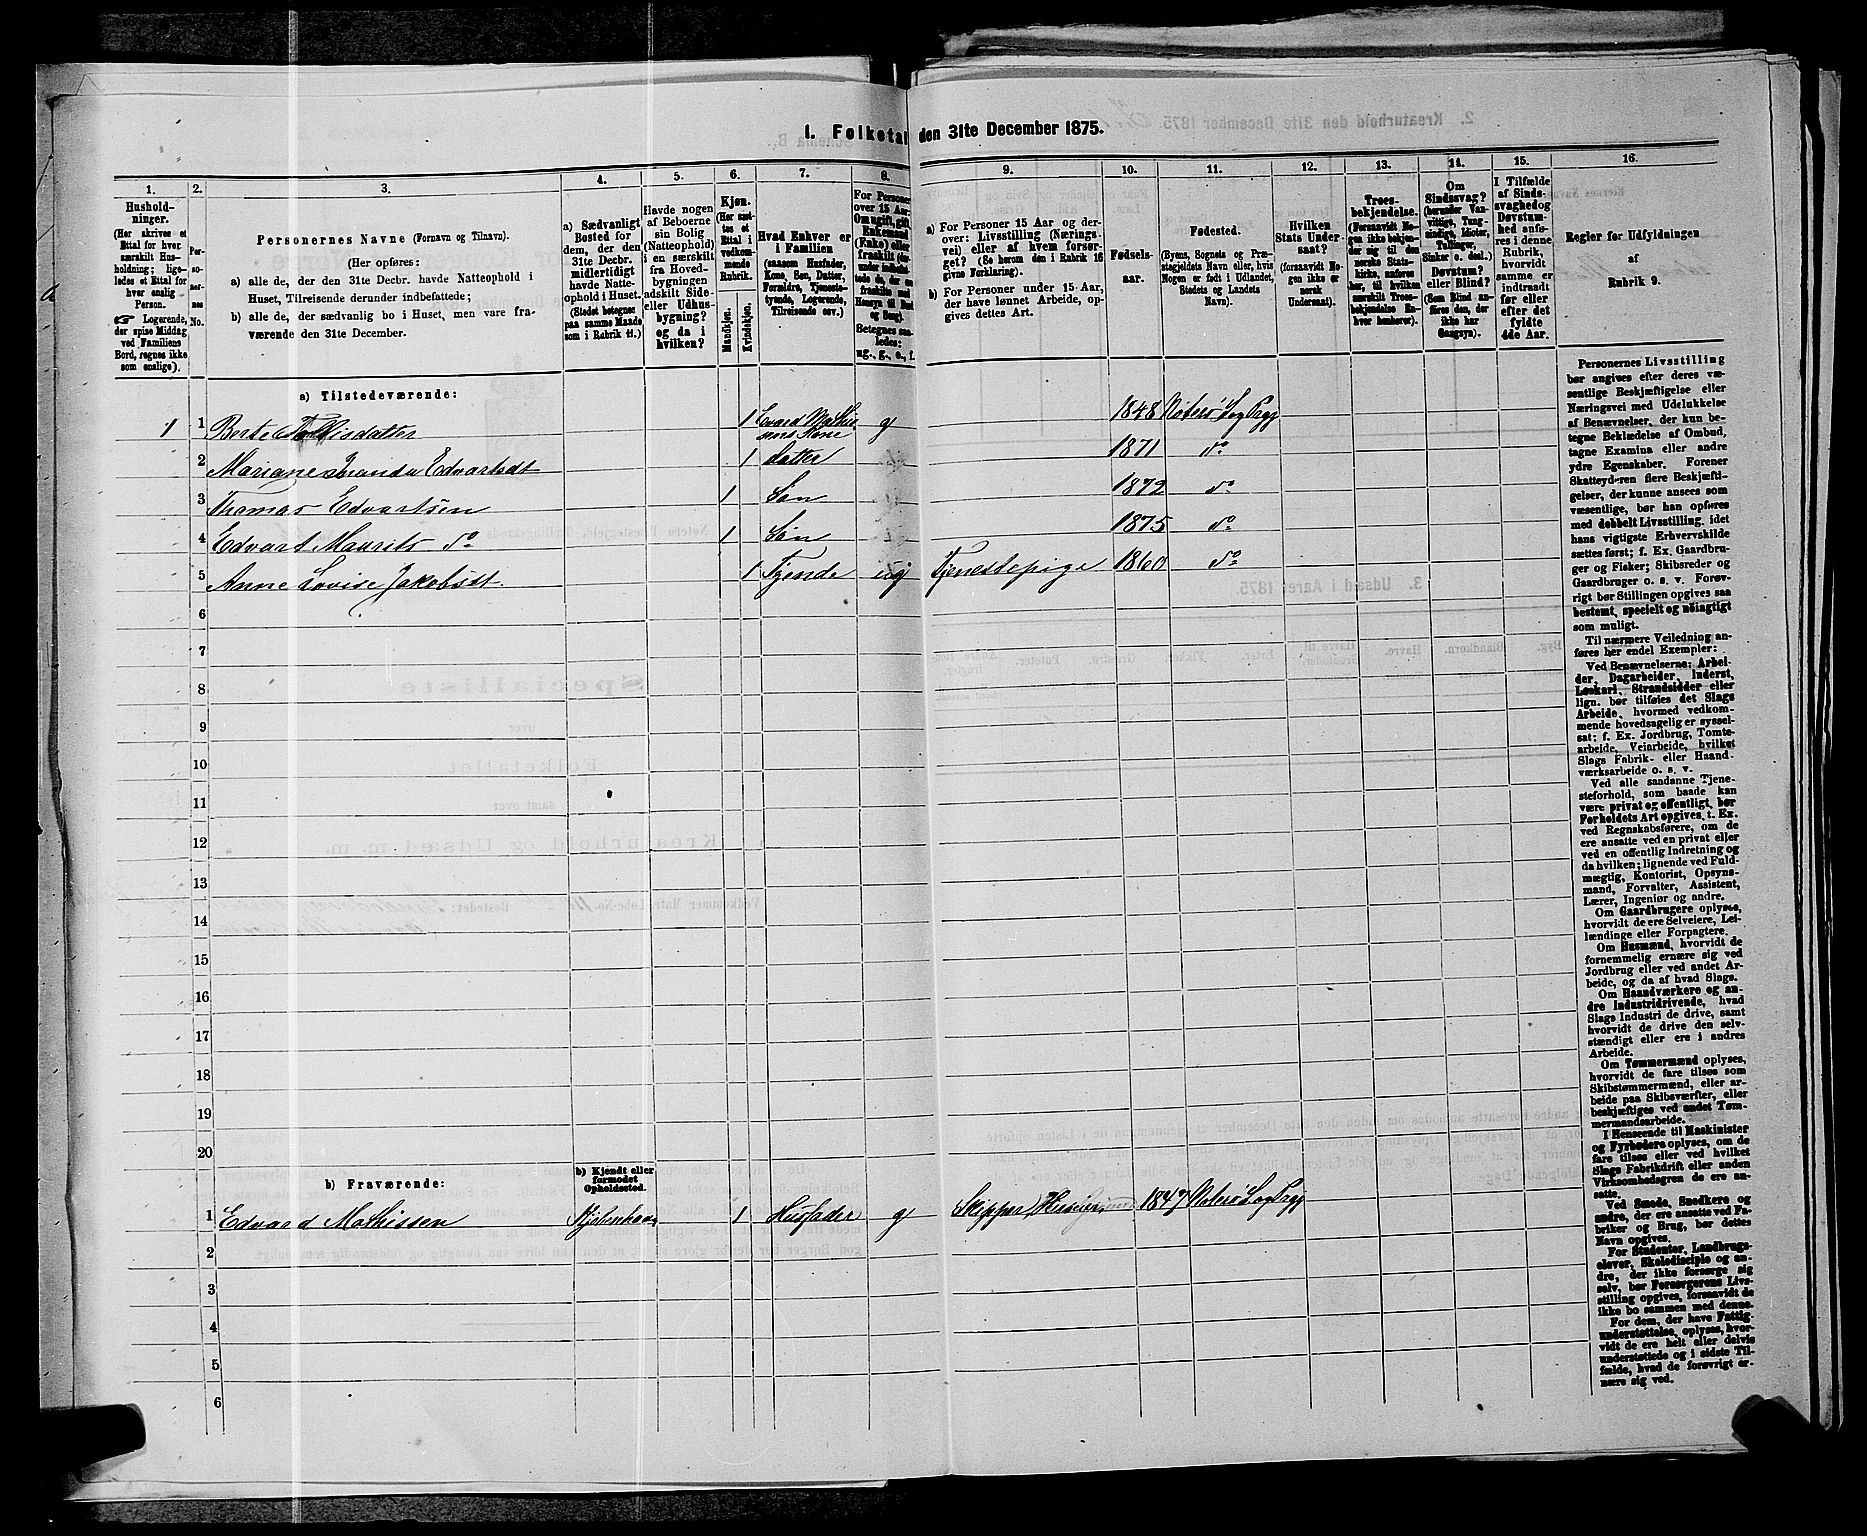 1. Folketal den 31te December 1875.
1.
2.
3.
4.
5.
6.
7.
8.
9.
10.
11.
12.
13.
14.
15.
16.
Hushold-
ninger.
(Her skrives et
Ettal for hver
særskilt Hus-
holdning; lige-
ledes et Ettal for
hver enslig
Person.
☞ Logerende,
der spise Middag
ved Familiens
Bord, regnes ikke
som enslige).
Per-
so-
ner-
nes
No.
Personernes Navne (Fornavn og Tilnavn).
(Her opføres:
a) alle de, der den 31te Decbr. havde Natteophold i
Huset, Tilreisende derunder indbefattede;
b) alle de, der sædvanlig bo i Huset, men vare fra-
værende den 31te December.
a) Sædvanligt
Bosted for
dem, der den
31te Decbr.
midlertidigt
havde Natte-
ophold i Huset.
(Stedet betegnes
paa samme Maade
som i Rubrik 11.)
Havde nogen
af Beboerne
sin Bolig
(Natteophold)
i en særskilt
fra Hoved-
bygningen
adskilt Side-
eller Udhus-
bygning?
og da i
hvilken?
Kjøn.
(Her sæt-
tes et
Ettal i
vedkom-
mende
Rubrik.
Mandkjøn.
Kvindekjøn.
Hvad Enhver er
i Familien
(saasom Husfader,
Kone, Søn, Datter,
Forældre, Tjeneste-
tyende, Logerende,
Tilreisende osv.)
For Personer
over 15 Aar:
Om ugift, gift,
Enkemand
(Enke) eller
fraskilt
Betegnes saa-
ledes:
ug., g., e., f.
a) For Personer 15 Aar og der-
over: Livsstilling (Nærings-
vei) eller af hvem forsør-
get? (Se herom den i Rubrik 16
givne Forklaring).
b) For Personer under 15 Aar,
der have lønnet Arbeide, op-
gives dettes Art.
Fødsels-
aar.
Fødested.
(Byens, Sognets og Præ-
stegjeldets Navn eller, hvis
Nogen er født i Udlandet,
Stedets og Landets
Navn).
Hvilken
Stats Under-
saat?
(forsaavidt No-
gen ikke er
norsk
Undersaat).
Troes-
bekjendelse.
(Forsaavidt No-
gen ikke bekjen-
der sig til den
norske Stats-
kirke, anføres
her, til hvilken
særskilt Troes-
bekjendelse En-
hver henhører).
Om
Sindssvag?
(herunder Van-
vittige, Tung-
sindige, Idioter,
Tullinger,
Sinker o. desl.)
Døvstum?
eller Blind?
(Som Blind an-
føres den, der
ikke har
Gangsyn).
I Tilfælde
af Sinds-
svaghed og
Døvstum-
hed anfø-
res i denne
Rubrik,
hvorvidt
samme er
indtraadt
før eller
efter det
fyldte
4de Aar.
Regler for Udfyldningen
af
Rubrik 9.
a) Tilstedeværende:
1 1 Berte datter 1 Mathis g 1848 Nøterø Sog Prgj
sens Kone
2 Mariane Edvartsdt 1 datter 1871 do
3 Thomas Edvartsen 1 Søn 1872 do
4 Edvart Maurits do 1 Søn 1875 do
5 Anne Lovise Jakobsdt. 1 Tyende ug Tjenestepige 1860 do
6
7
8
9
10
11
12
13
14
15
16
17
18
19
20
b) Fraværende:
b) Kjendt eller
formodet
Opholdssted.
1 Edvard Mathissen Kjøbenhavn 1 Husfader g Skipper 1847 Nøterø Sog Prgj
2
3
4
5
6
Personernes Livsstilling
bør angives efter deres væ-
sentlige Beskjæftigelse eller
Næringsvei med Udelukkelse
af Benævnelser, der kun be-
tegne Beklædelse af Ombud,
tagne Examina eller andre
ydre Egenskaber. Forener
Skatteyderen flere Beskjæfti-
gelser, der kunne ansees som
væsentlige, bør han opføres
med dobbelt Livsstilling, idet
hans vigtigste Erhvervskilde
sættes først; f. Ex. Gaardbru-
ger og Fisker; Skibsreder og
Gaardbruger o. s. v. Forøv-
rigt bør Stillingen opgives saa
bestemt, specielt og nøiagtigt
som muligt.
Til nærmere Veiledning an-
føres her endel Exempler:
Ved Benævnelserne: Arbei-
der, Dagarbeider, Inderst,
Løskarl, Strandsidder eller
lign. bør tilføies det Slags
Arbeide, hvormed vedkom-
mende hovedsagelig er syssel-
sat; f. Ex. Jordbrug, Tomte-
arbeide, Veiarbeide, hvilket
Slags Fabrik- eller Haand-
værksarbeide o. s. v.
Ved alle saadanne Tjene-
steforhold, som baade kan
være privat og offentligt, bør
Forholdets Art opgives, t. Ex.
ved Regnskabsførere, om de
ere ansatte ved en privat eller
ved en offentlig Indretning og
da hvilken; lignende ved Fuld-
mægtig, Kontorist, Opsyns-
mand, Forvalter, Assistent,
Lærer, Ingeniør og andre.
Om Gaardbrugere oplyses,
hvorvidt de ere Selveiere, Lei-
lændinge eller Forpagtere.
Om Husmænd, hvorvidt de
fornemmelig ernære sig ved
Jordbrug eller ved andet Ar-
beide, og da af hvad Slags.
Om Haandværkere og an-
dre Industridrivende, hvad
Slags Industri de drive, samt
hvorvidt de drive den selv-
stændigt eller ere i andres
Arbeide.
Om Tømmermænd oplyses,
hvorvidt de fare tilsøs som
Skibstømmermænd, eller ar-
beide paa Skibsværfter, eller
beskjæftiges ved andet Tøm-
mermandsarbeide.
I Henseende til Maskinister
og Fyrbødere oplyses, om de
fare tilsøs eller ved hvilket
Slags Fabrikdrift eller anden
Virksomhedsgren de ere an-
satte.
Ved Smede, Snedkere og
andre, der ere ansatte ved Fa-
briker og Brug, bør dettes
Navn opgives.
For Studenter, Landbrugs-
elever, Skoledisciple og an-
dre, der ikke forsørge sig
selv, bør Forsørgerens Livs-
stilling opgives, forsaavidt de
ikke bo sammen med denne.
For dem, der have Fattig-
understøttelse, oplyses, hvor-
vidt de ere helt eller delvis
understøttede og i sidste Til-
fælde, hvad de forøvrigt er-
nære sig ved.